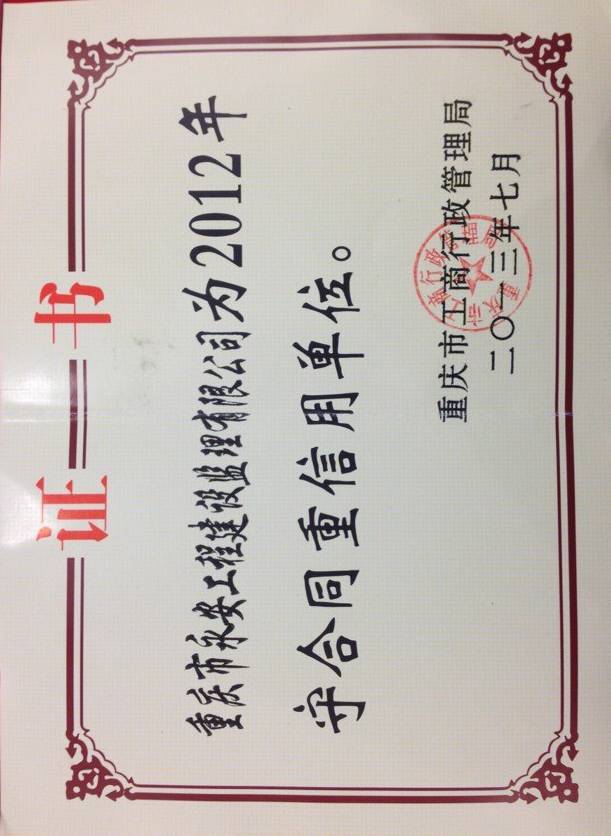 证书
重庆市永安工程建设监理有限公司为2012年
守合同重信用单位。
重庆市工商行政管理局
二〇一三年七月